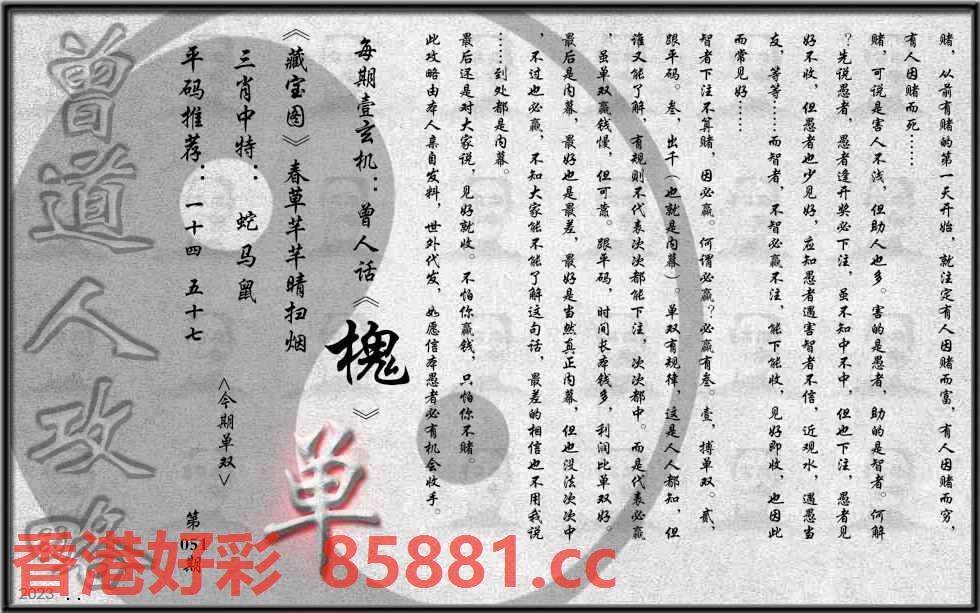 赌，从前有赌的第一天开始，就注定有人因赌而富，有人因赌而穷，
有人因赌而死……
赌，可说是害人不浅，但助人也多。害的是愚者，助的是智者。何解
？先说愚者，愚者逢开奖必下注，虽不知中不中，但也下注，愚者见
好不收，但愚者也少见好，应知愚者遇害智者不信，近观水，遇愚当
友，等等……而智者，不智必赢不注，能下能收，见好即收，也因此
而常见好……
智者下注不算赌，因必赢。何谓必赢？必赢有叁。壹，搏单双。贰，
跟平码。叁，出千（也就是内幕）。单双有规律，这是人人都知，但
谁又能了解，有规则不代表次次都能下注，次次都中。而是代表必赢
，虽单双赢钱慢，但可靠。跟平码，时间长本钱多，利润比单双好。
最后是内幕，最好也是最差，最好是当然真正内幕，但也没法次次中
，不过也必赢，不知大家能不能了解这句话，最差的相信也不用我说
……到处都是内幕。
最后还是对大家说，见好就收。不怕你赢钱，只怕你不赌。
此攻略由本人亲自发料，世外代发，如愿信本愚者必有机会收手。
每期壹玄机：曾人话《槐》
《藏宝图》春草芊芊晴扫烟
三肖中特：蛇马鼠
<今期单双>
单
平码推荐：一十四 五十七
第051期
曾道人攻略
香港好彩 85881.cc
2023